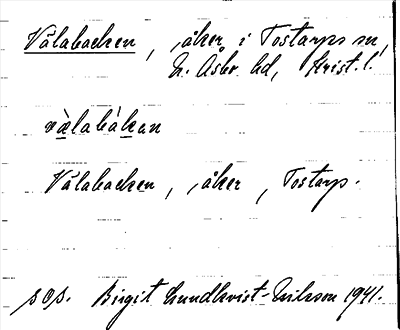 Välabacken, åker i Tostarps sn,
N. Åsbo hd, Krist. l.
væ̀labàkan
Välabacken, åker, Tostarp.
sop. Birgit Lundkvist-Nilsson 1941.